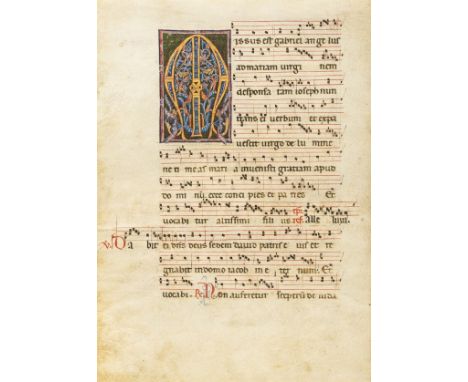 issus est gabriel angelus
ad mariam virgi nem
desponsa tam ioseph nun
et verbum et expa
vescit virgo de lu mine
ne ti me as mari a invenisti gratiam apud
do mi nu ecce conci pies et pa ries Et
vocabi tur altissimi fili us Alle luia
Da bit
ei dns deus sedem david patris e ius et re
gnabit in domo iacob in e ter num Et
vocabi Non auferetur sceptru de iuda